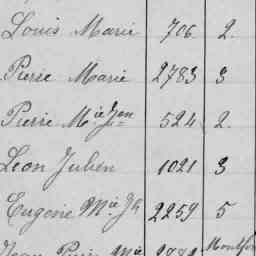 Louis Marie 706 2.
Pierre Marie 2783 3
Pierre Mie Jen 524 2.
Léon Julien 1021 3
Eugene Mie Jh 2259 5
Jean Pierre Mie